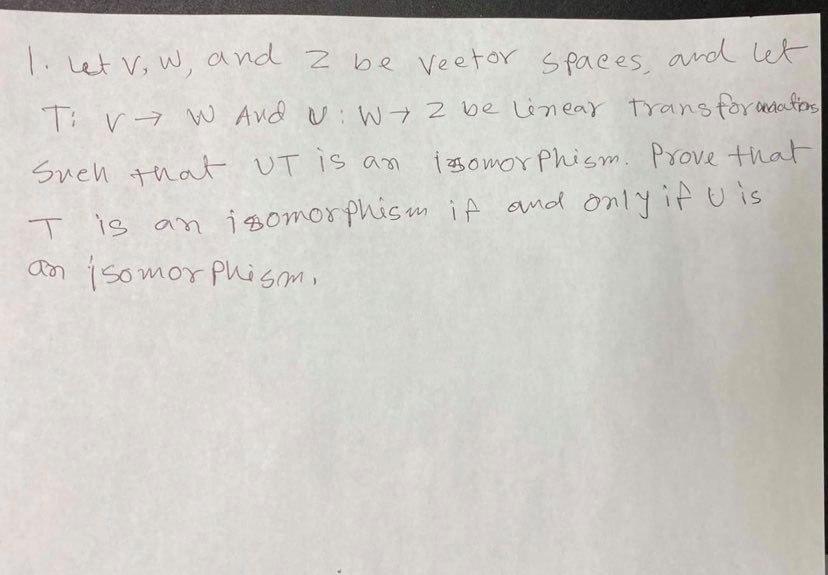 1. Let V, W, and Z be vector spaces, and let
T: V → W And U: W → Z be linear transformations
Such that UT is an isomorphism. Prove that
T is an isomorphism if and only if U is
an isomorphism.